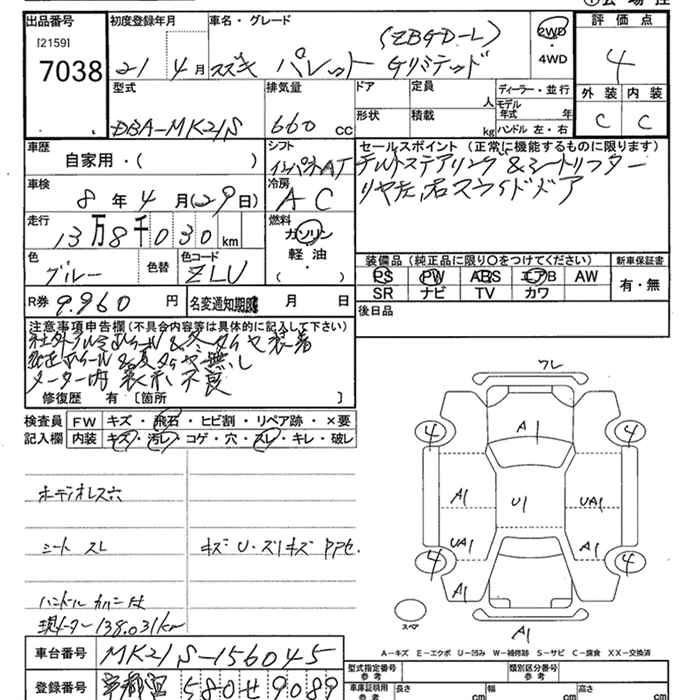 出品番号
[2159]
7038
初度登録年月
21年 4月
車名・グレード
(ZBGD-L)
スズキ パレット Gリミテッド
2WD
・
4WD
評価点
4
外装 内装
C C
型式
DBA-MK21S
排気量
660 cc
ドア
定員
人
形状
積載
kg
ディーラー・並行
モデル年式 年
ハンドル 左・右
車歴
自家用・( )
シフト
インパネAT
セールスポイント (正常に機能するものに限ります)
チルトステアリング&シートリフター
リヤ左,右スライドドア
車検
8年 4月 (29日)
冷房
AC
走行
13万8千030km
燃料
ガソリン
軽油
( )
色
ブルー
色替
色コード
ZLU
装備品 (純正品に限り〇をつけてください)
PS PW ABS エアB AW
SR ナビ TV カワ
新車保証書
有・無
R券 9,960円
名変通知期限 月 日
後日品
注意事項申告欄 (不具合内容等は具体的に記入して下さい)
社外アルミホイール&冬タイヤ装着
純正ホイール&夏タイヤ無し
メーター内 表示不良
修復歴 有 〔箇所 〕
検査員
記入欄
FW キズ・飛石・ヒビ割・リペア跡・×要
内装 キズ・汚レ・コゲ・穴・スレ・キレ・破レ
ホデオレス穴
シート スレ
キズ U・スリキズ P.P.セ.
ハンドルカバー付
現メーター138,031km
フレ
A1
4 4
A1 U1 UA1
UA1 A1
4 4
A1 A1
スペア
A1
A-キズ E-エクボ U-凹み W-補修跡 S-サビ C-腐食 XX-交換済
車台番号 MK21S-156045
登録番号 580 せ 9089
型式指定番号
参考
類別区分番号
参考
車庫証明用
参考
長さ cm
幅 cm
高さ cm